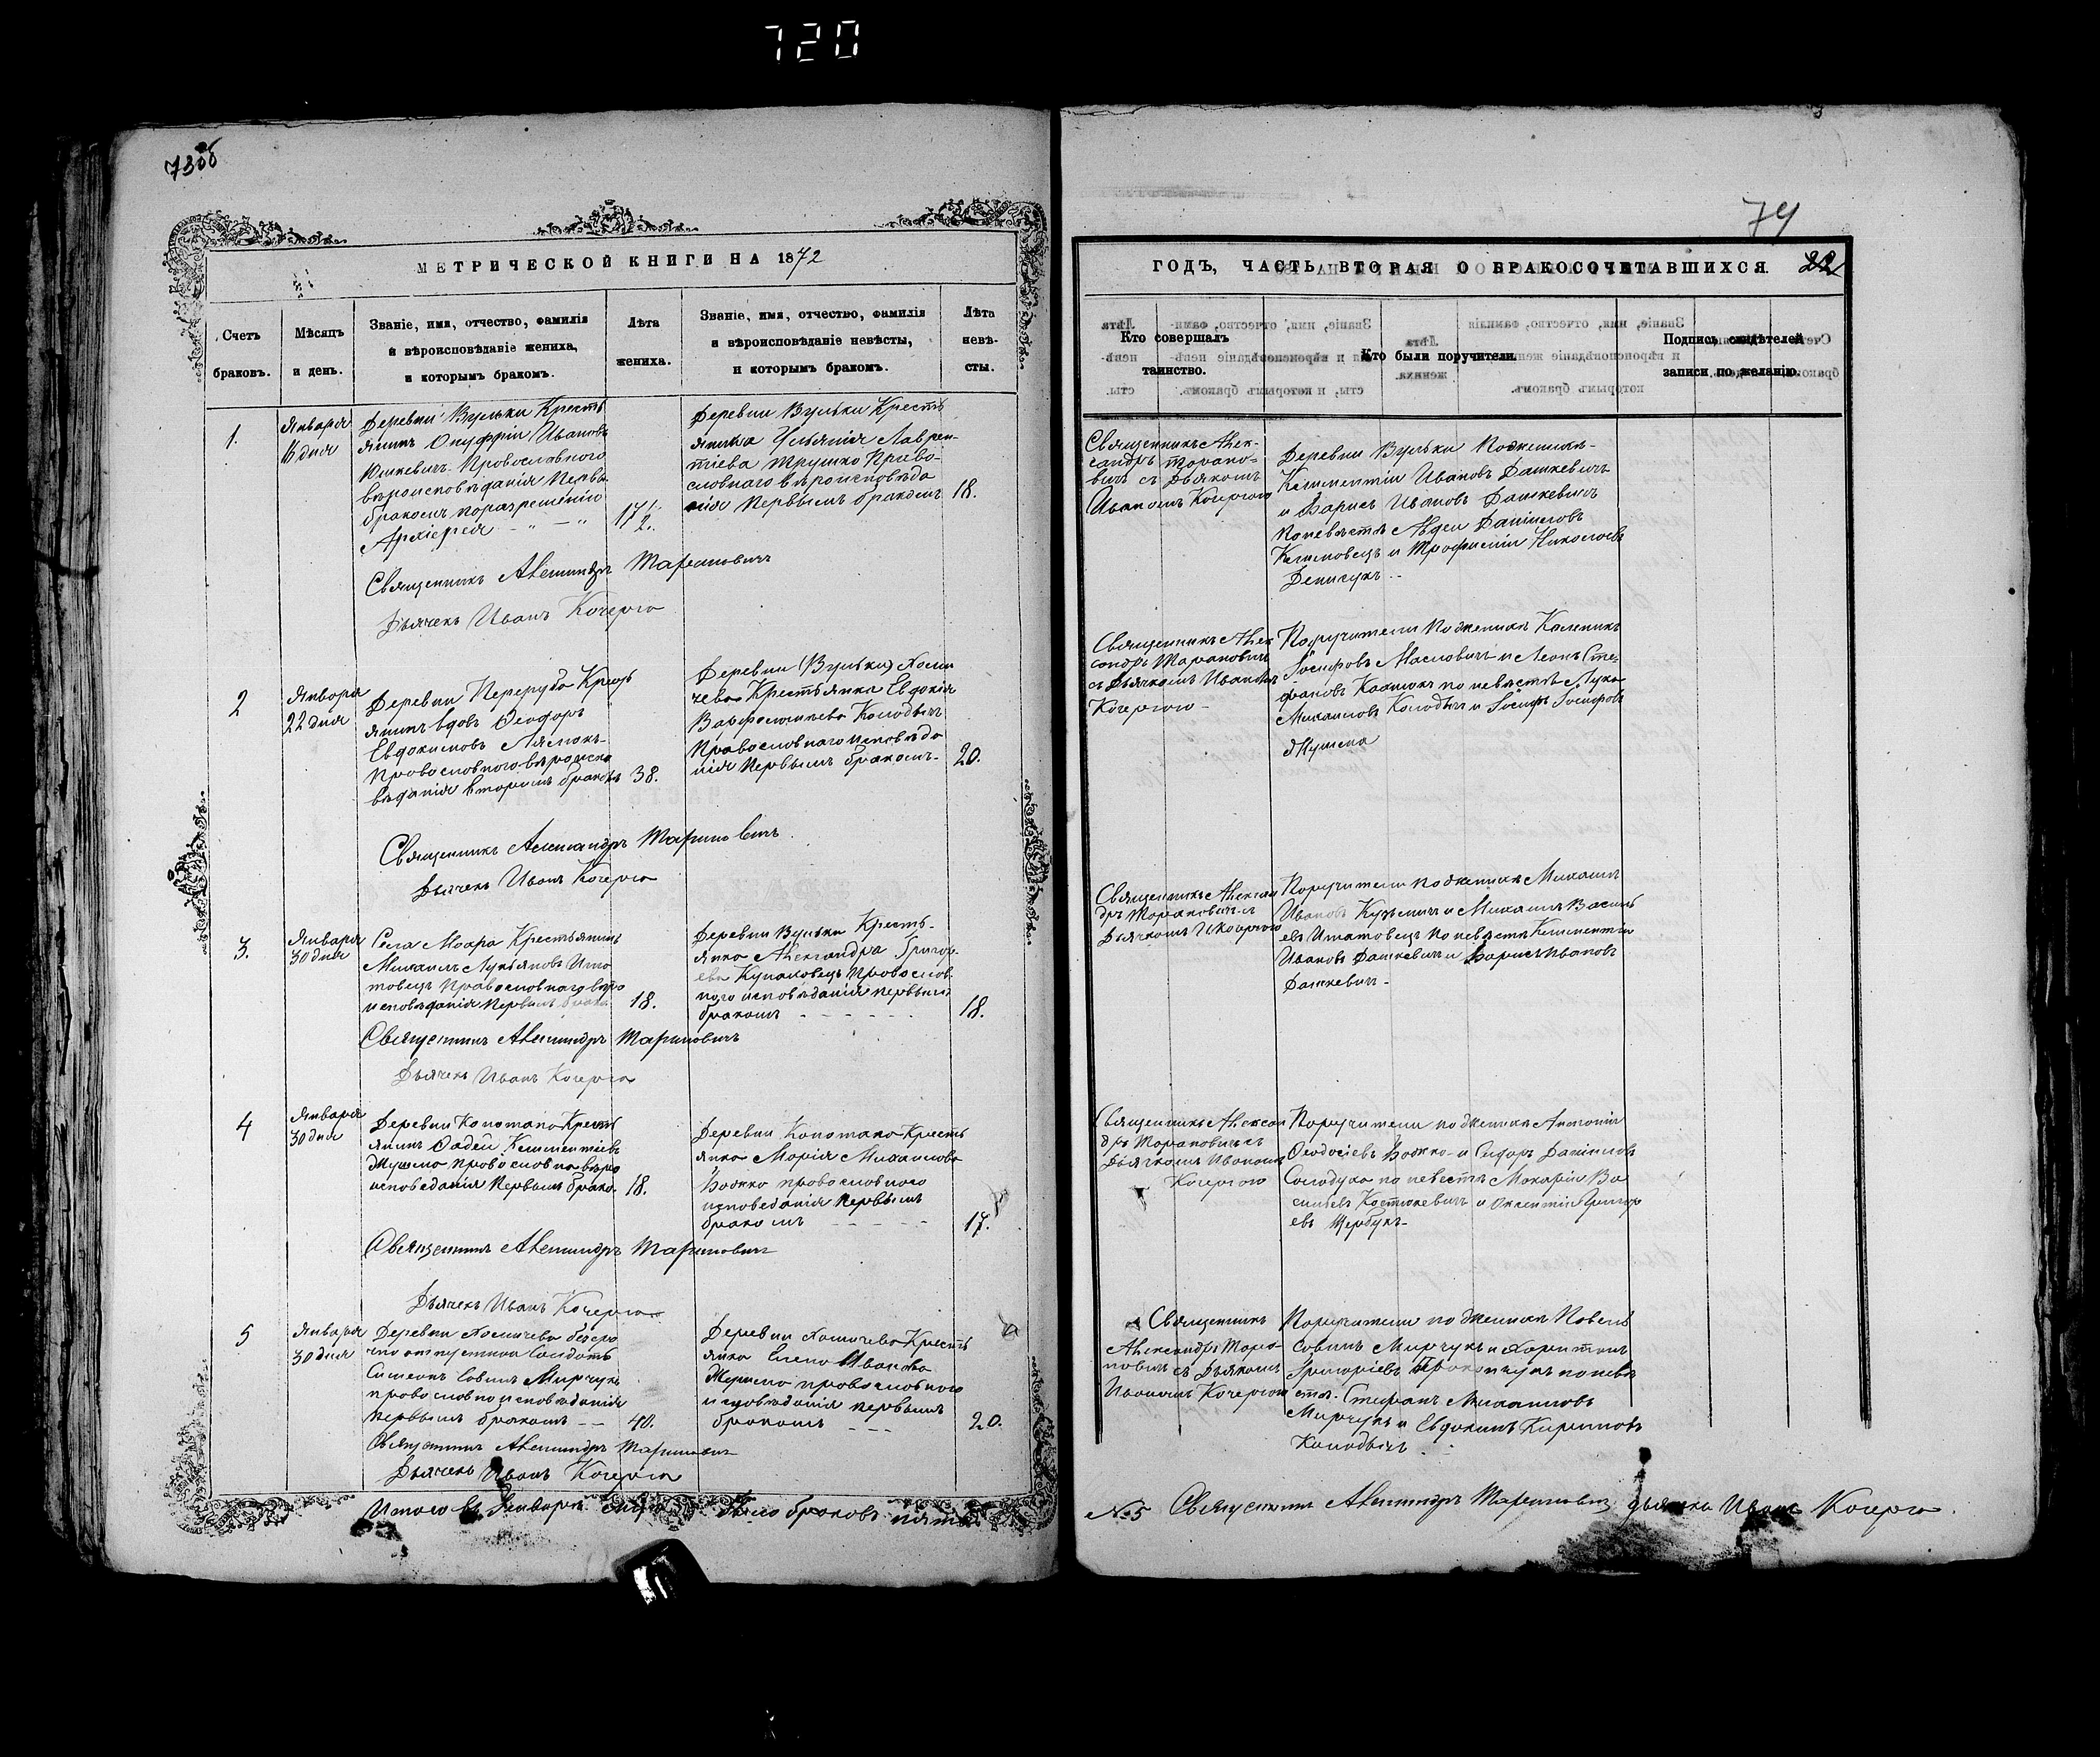 720
73об
МЕТРИЧЕСКОЙ КНИГИ НА 1872
Счетъ браковъ.
Мѣсяцъ и день.
Званіе, имя, отчество, фамилія и вѣроисповѣданіе жениха, и которымъ бракомъ.
Лѣта жениха.
Званіе, имя, отчество, фамилія и вѣроисповѣданіе невѣсты, и которымъ бракомъ.
Лѣта невѣ-сты.
1.
Января
дня
Деревни Вульки Кресть
янинъ Онуфрій Ивановъ
Православнаго
вѣроисповѣданія Первы
бракомъ поразрешенію
Архіерея
17 1/2.
Деревни Вульки Кресть
янка Ульянія Лаврен-
тіева Трушко Право-
славнаго вѣроисповѣда
нія Первымъ бракомъ
18.
Священникъ Александръ Таранович
Дьячекъ Иванъ Кочерго
2
Января
22 дня
Деревни Переруба Кресть
янинъ вдовъ Ѳеодоръ
Евдокимовъ
Православнаго вѣроиспо
вѣданія вторымъ бракомъ
38.
Деревни (Вульки) Хоми
чева Крестьянка Евдокія
Варфоломиева Колодыч
Православнаго исповѣда
нія Первымъ бракомъ
20.
Священникъ Александръ Таранович
Дьячекъ Иванъ Кочерго
3.
Января
30 дня
Села Мохра Крестьянинъ
Михаилъ Лукьяновъ Игна
товецъ Православнаго вѣро
исповѣданія Первымъ брако
18.
Деревни Вульки Кресть-
янка Александра Григор-
ева Православ-
наго исповѣданія первымъ
бракомъ
18.
Священникъ Александръ Таранович
Дьячекъ Иванъ Кочерго
4
Января
30 дня
Деревни Крестъ
янинъ Ѳадей Климентіевъ
православна вѣро
исповеданія Первымъ брако.
18.
Деревни Кресть
янка Марія Михаилова
Божко православнаго
исповеданія Первымъ
бракомъ
17.
Священникъ Александръ Таранович
Дьячекъ Иванъ Кочерго
5
Января
30 дня
Деревни Хомичева безсро
чно отпускной Солдатъ
Симеонъ Савинъ Мирчукъ
православно исповѣданія
Первымъ бракомъ
40.
Деревни Хомичева Кресть
янка Елена Иванова
православнаго
исповѣданія первымъ
бракомъ
20.
Священникъ Александръ Таранович
Дьячекъ Иванъ Кочерго
Итого въ Январѣ было браковъ пять
74
ГОДЪ, ЧАСТЬ ВТОРАЯ О БРАКОСОЧЕТАВШИХСЯ.
22
Кто совершалъ таинство.
Кто были поручители.
Подпись свидѣтелей записи по желанію.
Священникъ Алек-
сандръ Тарано-
вичъ съ Дьячкомъ
Иваномъ Кочергою
Деревни Вульки По женихѣ
Климентій Ивановъ Дашкевичъ
и Борисъ Ивановъ Дашкевичъ
По невѣстѣ Авдеи Даніиловъ
Климовецъ и Трофимій Николаевъ
Денисукъ
Священникъ Алек
сандръ Таранович
съ Дьячкомъ Иваномъ
Кочергою
Поручители По женихѣ Каленикъ
Іосифовъ Маслович и Леонъ Сте-
фановъ по невѣстѣ Лука
Михаиловъ Колодыч и Іосифъ Іосифовъ
Священникъ Алексан
дръ Таранович съ
Дьячкомъ И Кочергою
Поручители По женихѣ Михаилъ
Ивановъ Кузьмич и Михаилъ Василь
евъ Игнатовецъ По невѣстѣ Климентій
Ивановъ Дашкевич и Борисъ Ивановъ
Дашкевич
Священникъ Алексан
дръ Таранович съ
Дьячкомъ Иваномъ
Кочергою
Поручители по женихѣ Антоній
Ѳеодосіевъ Божко и Сидоръ Даніиловъ
Солодуха по невестѣ Макарій Ва
сильевъ Костюкевич и Григор
евъ
Священникъ
Александръ Тара-
новичъ съ Дьячкомъ
Иваномъ Кочергою
Поручители по женихѣ Павелъ
Савинъ Мирчукъ и Харитонъ
Григоріевъ Прокопчукъ по невѣ
стѣ. Стефанъ Михаиловъ
Мирчукъ и Евдокимъ Кириловъ
Колодычъ
№ 5 Священникъ Александръ Таранович дьячекъ Иванъ Кочерго.